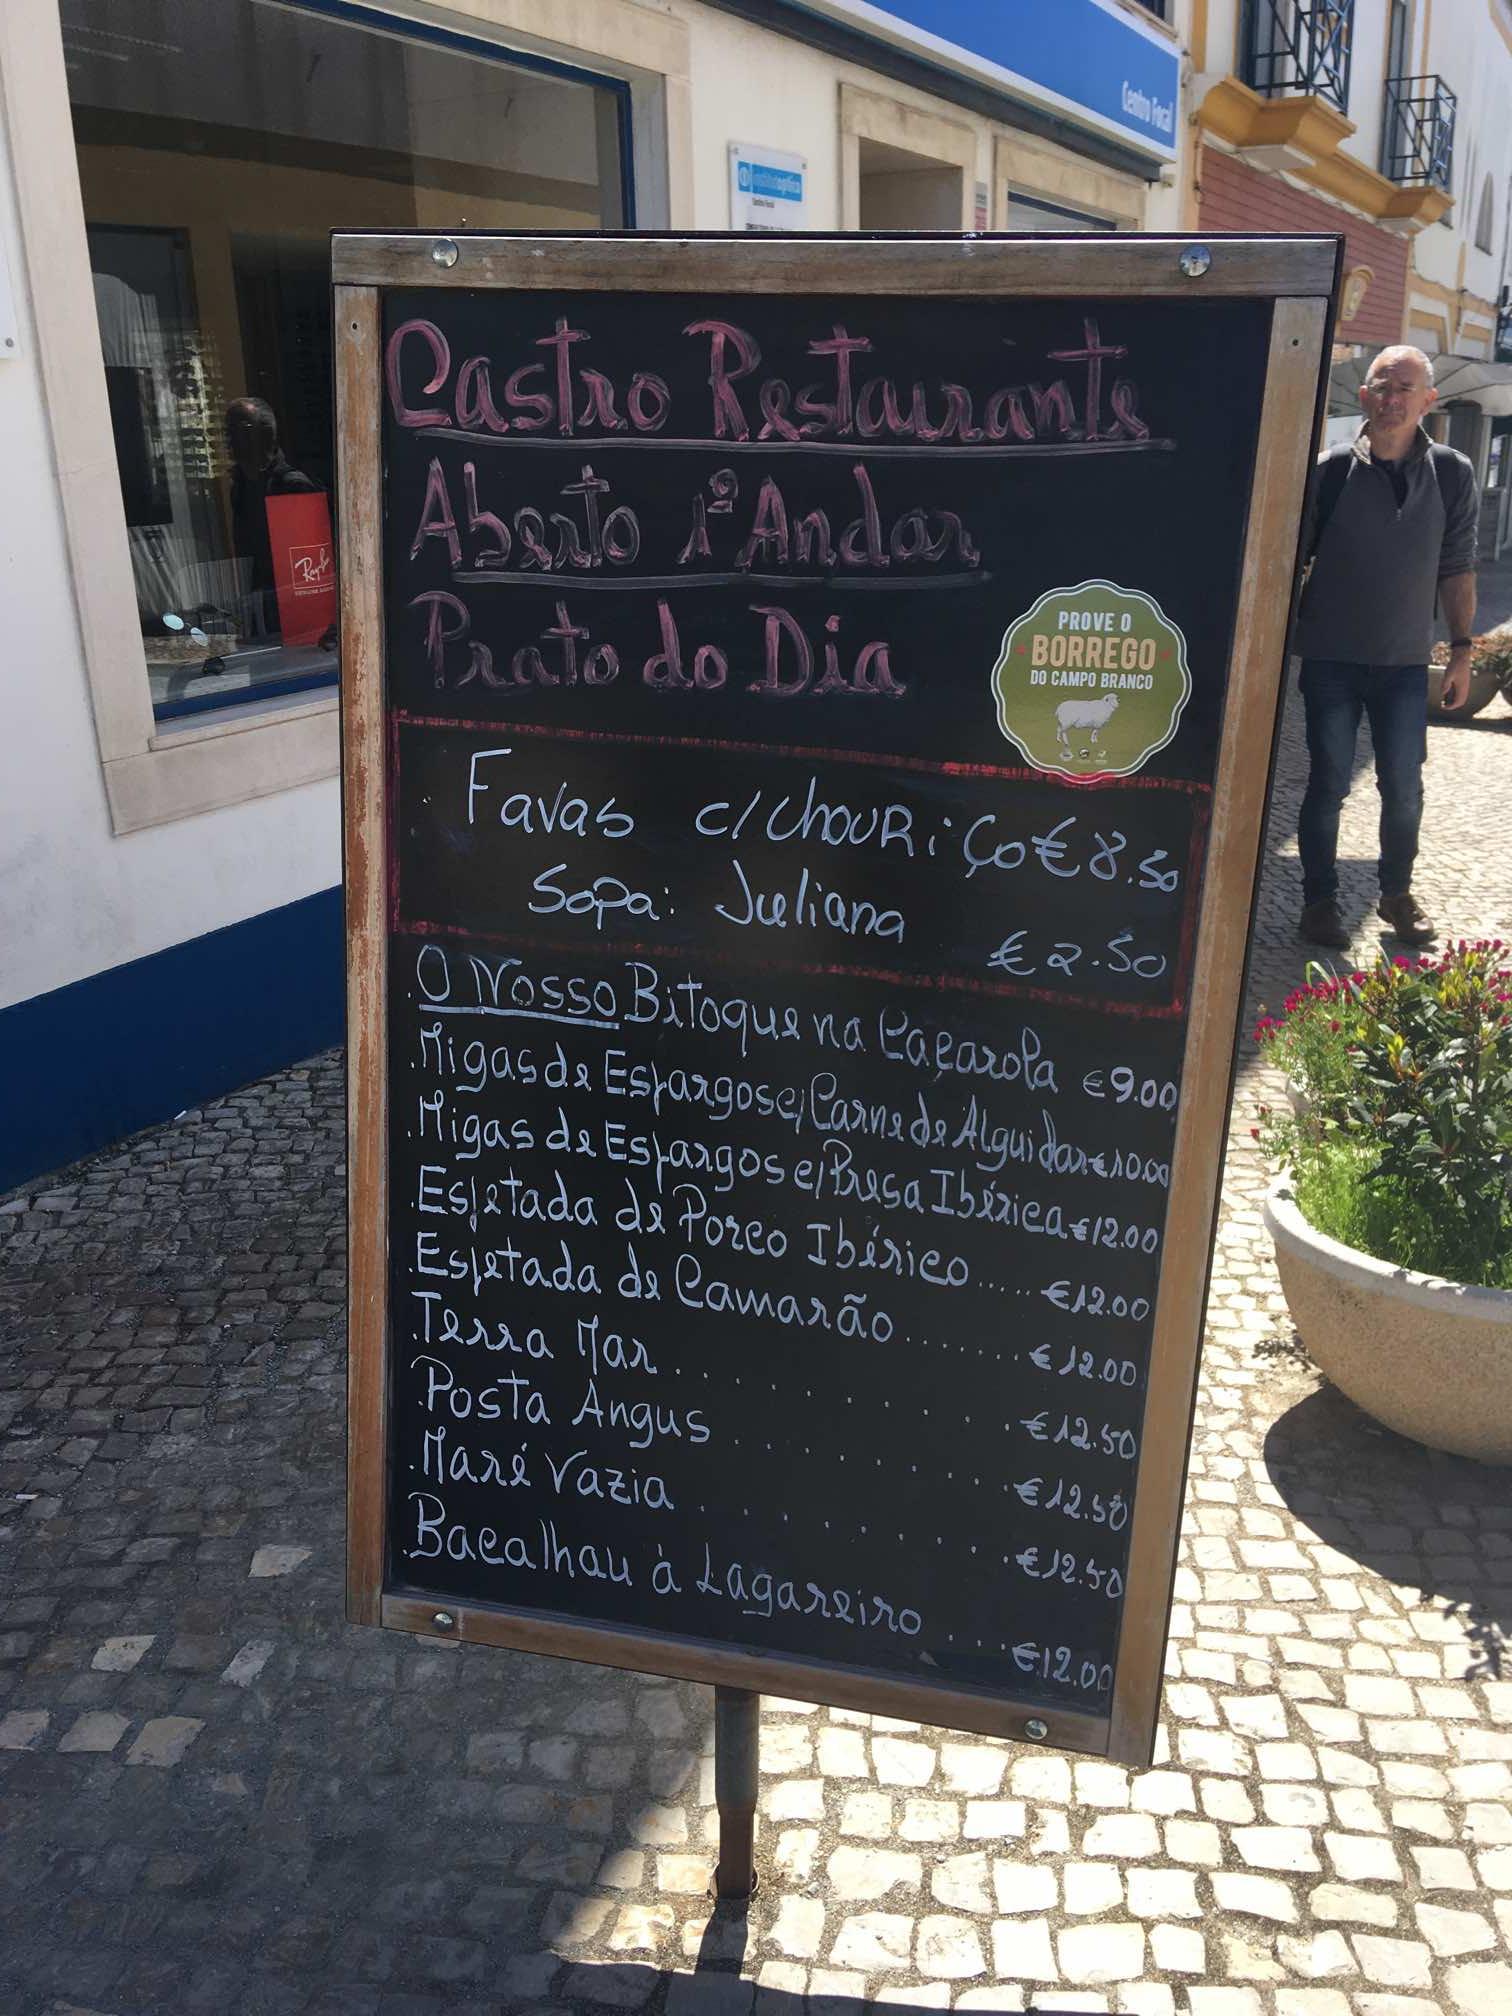 Centro Focal
institutoptico
Ray-Ban
Castro Restaurante
Aberto 1º Andar
Prato do Dia
PROVE O
BORREGO
DO CAMPO BRANCO
Favas c/ chouRiço € 8.50
Sopa: Juliana € 2.50
. O Nosso Bitoque na Caçarola €9.00
. Migas de Espargos c/ Carne de Alguidar €10.00
. Migas de Espargos c/ Presa Ibérica €12.00
. Espetada de Porco Ibérico ...... €12.00
. Espetada de Camarão ........ €12.00
. Terra Mar ............ €12.50
. Posta Angus ............ €12.50
. Maré Vazia ............ €12.50
. Bacalhau à Lagareiro .... €12.00